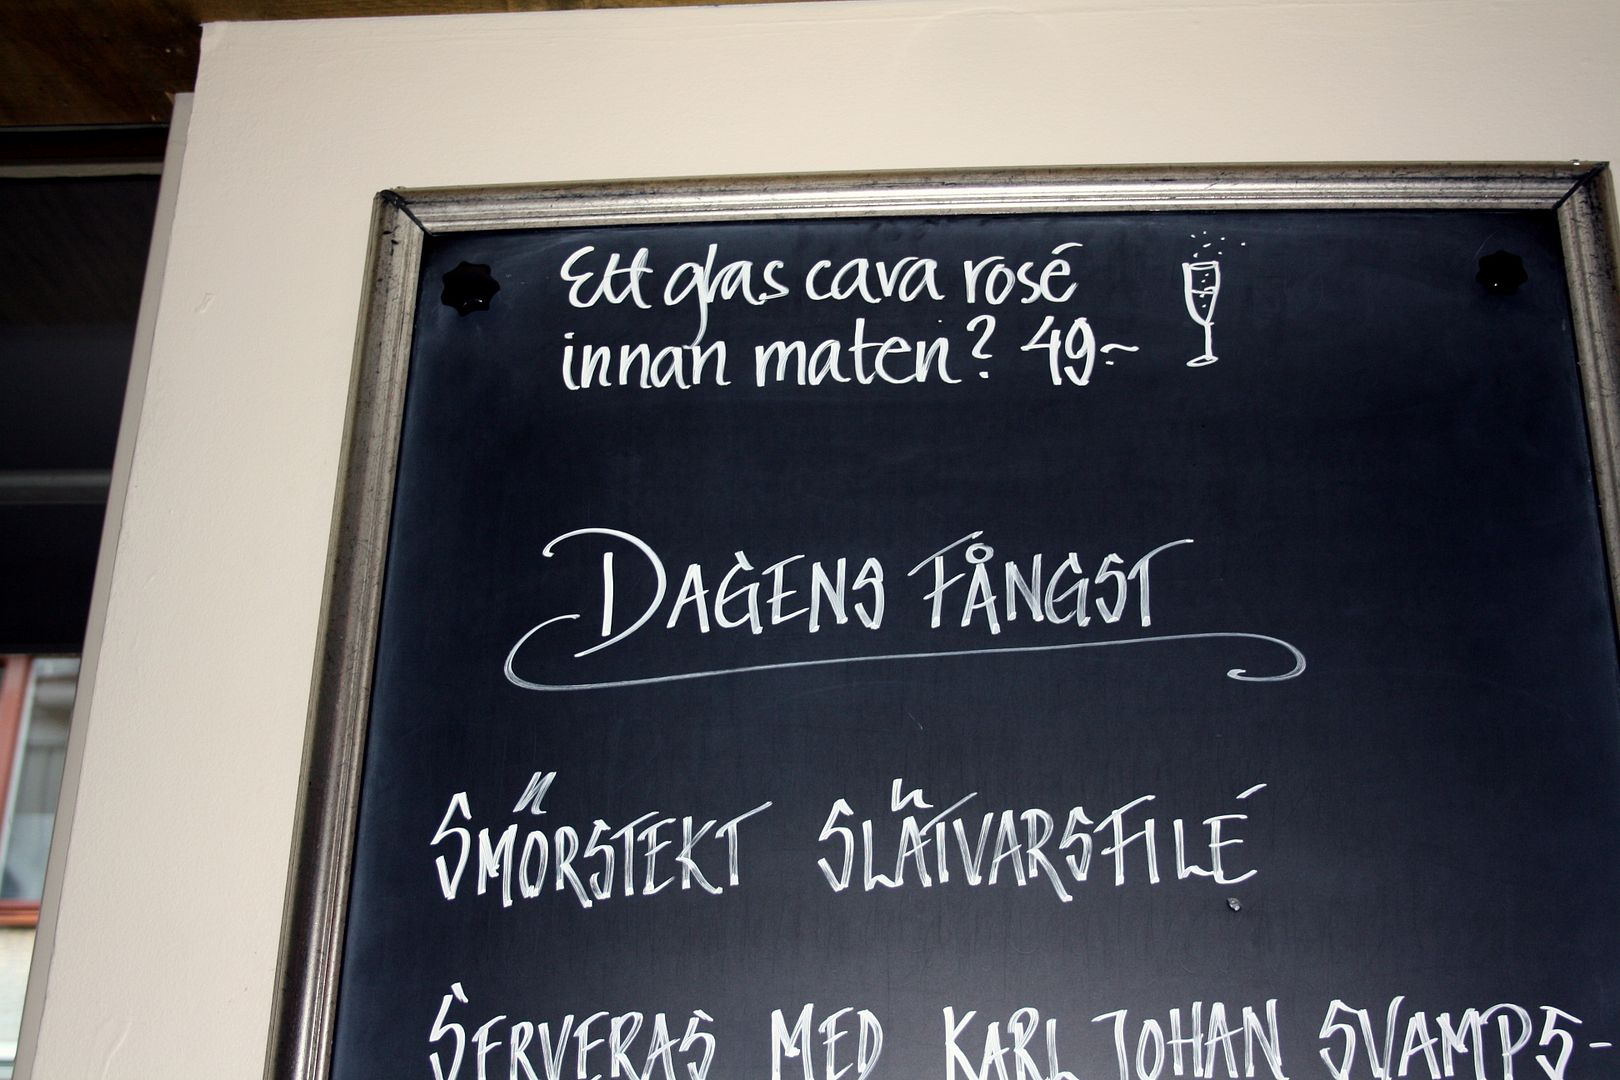 Ett glas cava rosé
innan maten? 49:-
DAGENS FÅNGST
SMÖRSTEKT SLÄTVARSFILÉ
SERVERAS MED KARL JOHAN SVAMPS-